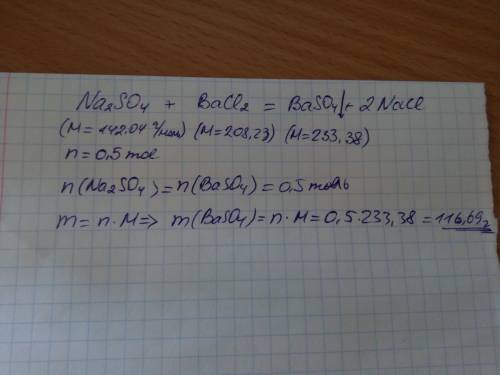 Na₂SO₄ + BaCl₂ = BaSO₄↓ + 2NaCl
(M = 142.04 г/моль) (M = 208,23) (M = 233,38)
n = 0,5 mol
n(Na₂SO₄) = n(BaSO₄) = 0,5 моль
m = n·M => m(BaSO₄) = n·M = 0,5·233,38 = 116,69г